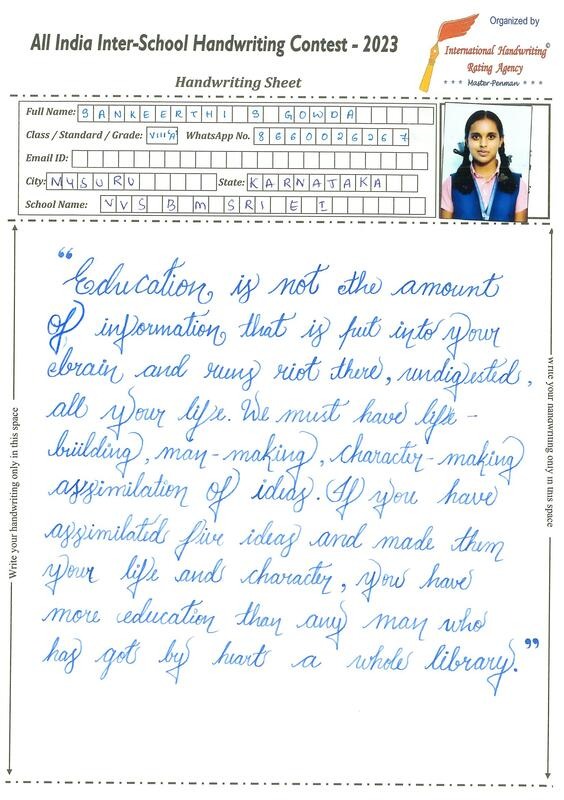 All India Inter-School Handwriting Contest - 2023
Organized by
International Handwriting©
Rating Agency
* * * Master-Penman * * *
Handwriting Sheet
Full Name: SANKEERTHI S GOWDA
Class / Standard / Grade: VIII 'A' WhatsApp No. 8660026267
Email ID:
City: MYSURU State: KARNATAKA
School Name: VVS BM SRI EI
Write your handwriting only in this space
Write your handwriting only in this space
“Education, is not the amount
of information, that is put into your
brain and runs riot there, undigested,
all your life. We must have life-
building, man-making, character-making
assimilation of ideas. If you have
assimilated five ideas and made them
your life and character, you have
more education than any man who
has got by heart a whole library.”